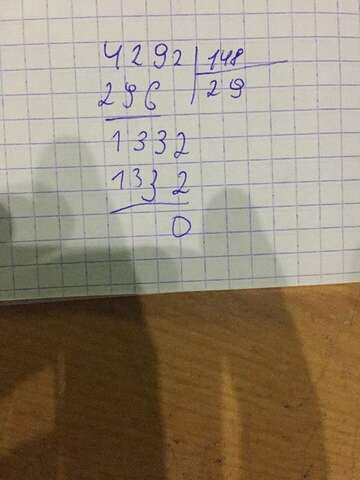 4292 148
296 29
1332
1332
0